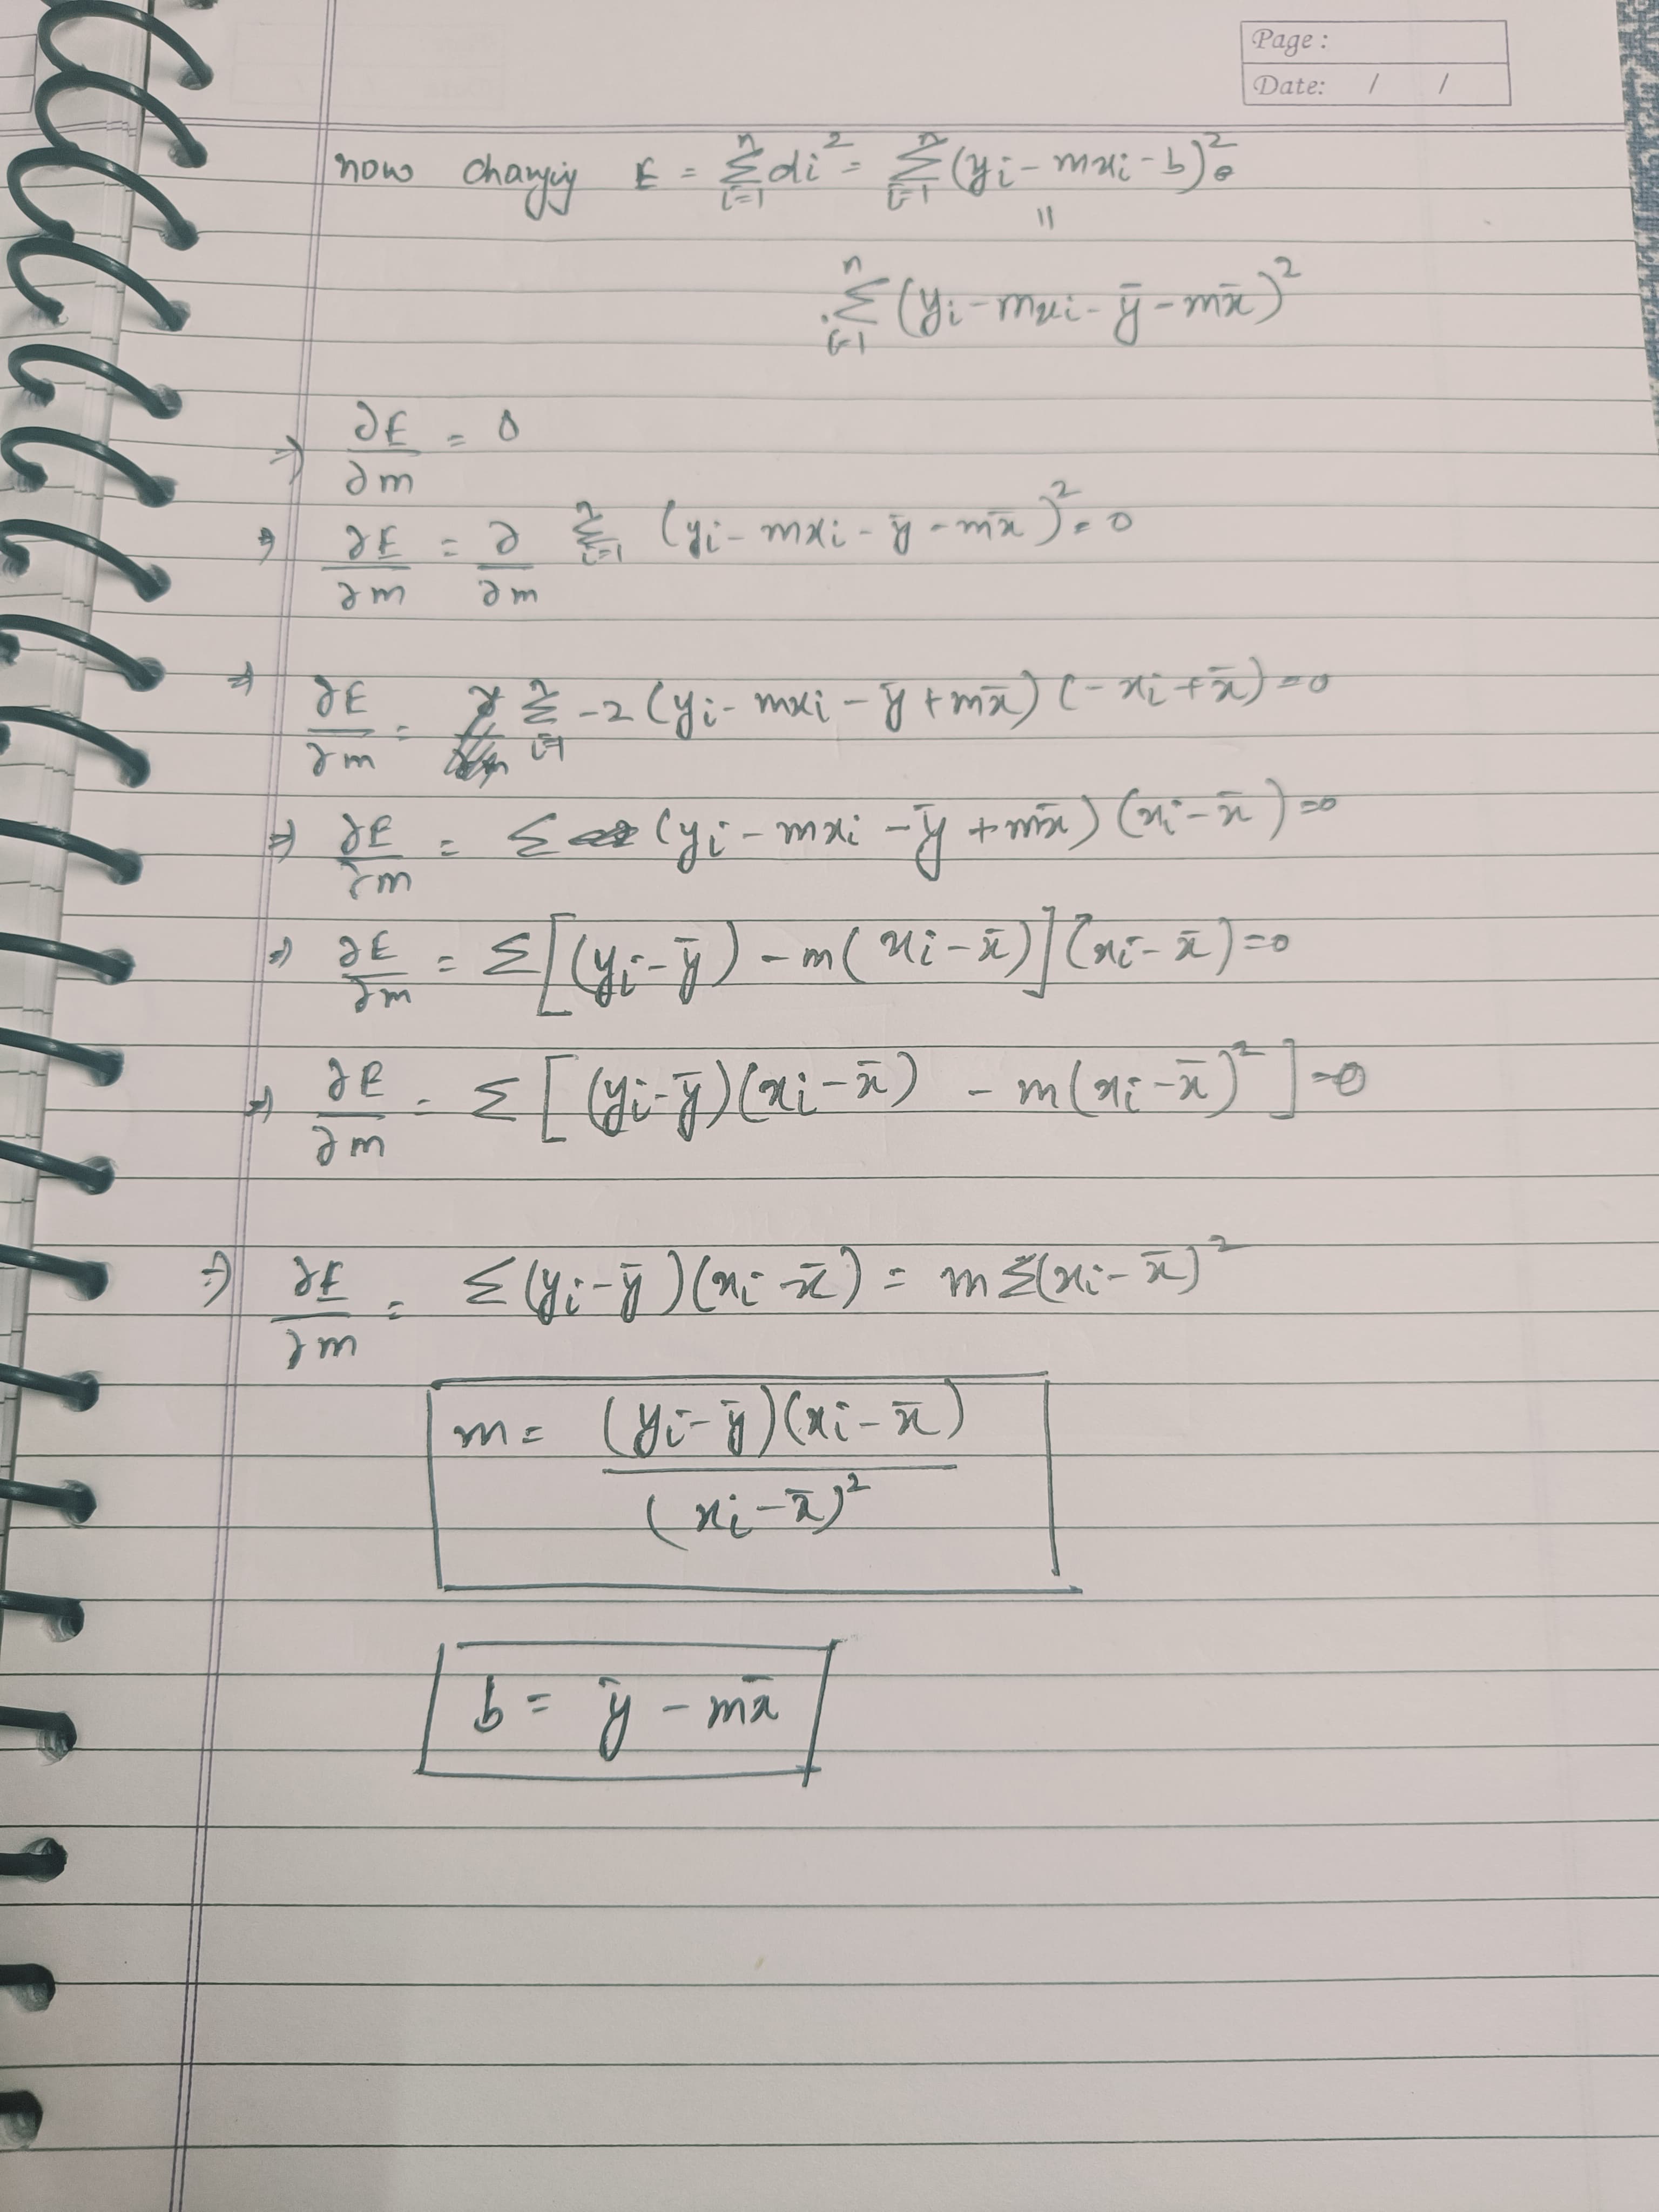 Page :
Date: / /
now changing E = Σ_{i=1}^{n} di² = Σ_{i=1}^{n} (yi - mxi - b)²
||
Σ_{i=1}^{n} (yi - mxi - ȳ - mx̄)²
⇒ ∂E/∂m = 0
⇒ ∂E/∂m = ∂/∂m Σ_{i=1}^{n} (yi - mxi - ȳ - mx̄)² = 0
⇒ ∂E/∂m = Σ_{i=1}^{n} -2 (yi - mxi - ȳ + mx̄) (-xi + x̄) = 0
⇒ ∂E/∂m = Σ (yi - mxi - ȳ + mx̄) (xi - x̄) = 0
⇒ ∂E/∂m = Σ [(yi - ȳ) - m(xi - x̄)] (xi - x̄) = 0
⇒ ∂E/∂m = Σ [(yi - ȳ)(xi - x̄) - m(xi - x̄)²] = 0
⇒ ∂E/∂m = Σ (yi - ȳ)(xi - x̄) = m Σ(xi - x̄)²
m = (yi - ȳ)(xi - x̄) / (xi - x̄)²
b = ȳ - mx̄